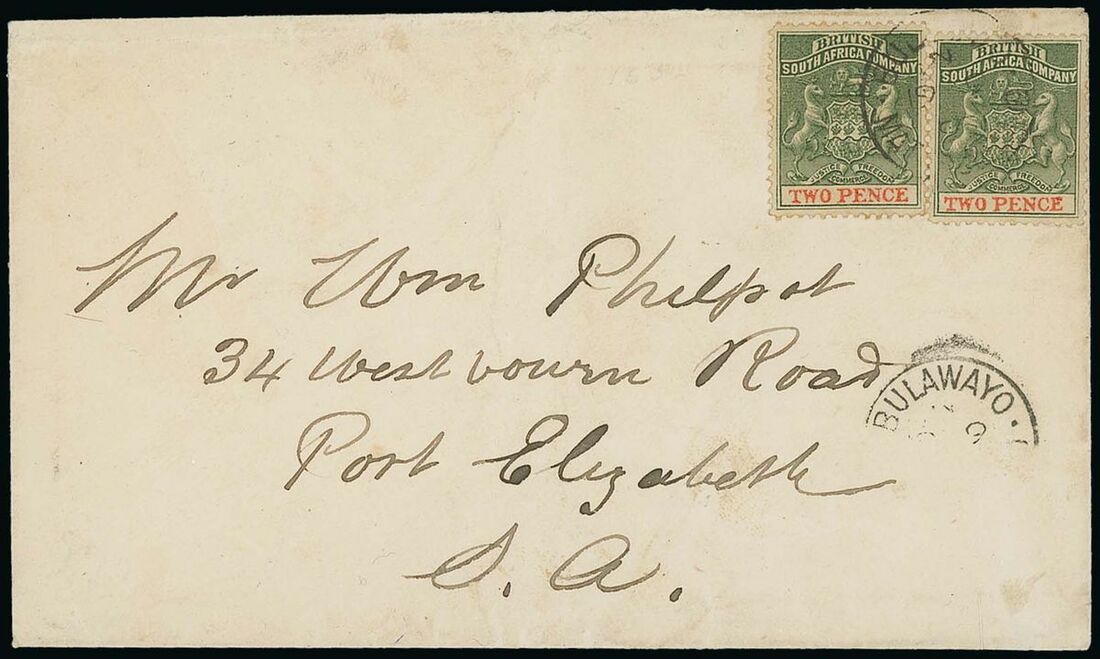 BRITISH
SOUTH AFRICA COMPANY
JUSTICE FREEDOM
COMMERCE
TWO PENCE
BRITISH
SOUTH AFRICA COMPANY
JUSTICE FREEDOM
COMMERCE
TWO PENCE
Mr Wm Philpot
34 Westbourn Road
Port Elizabeth
S. A.
BULAWAYO